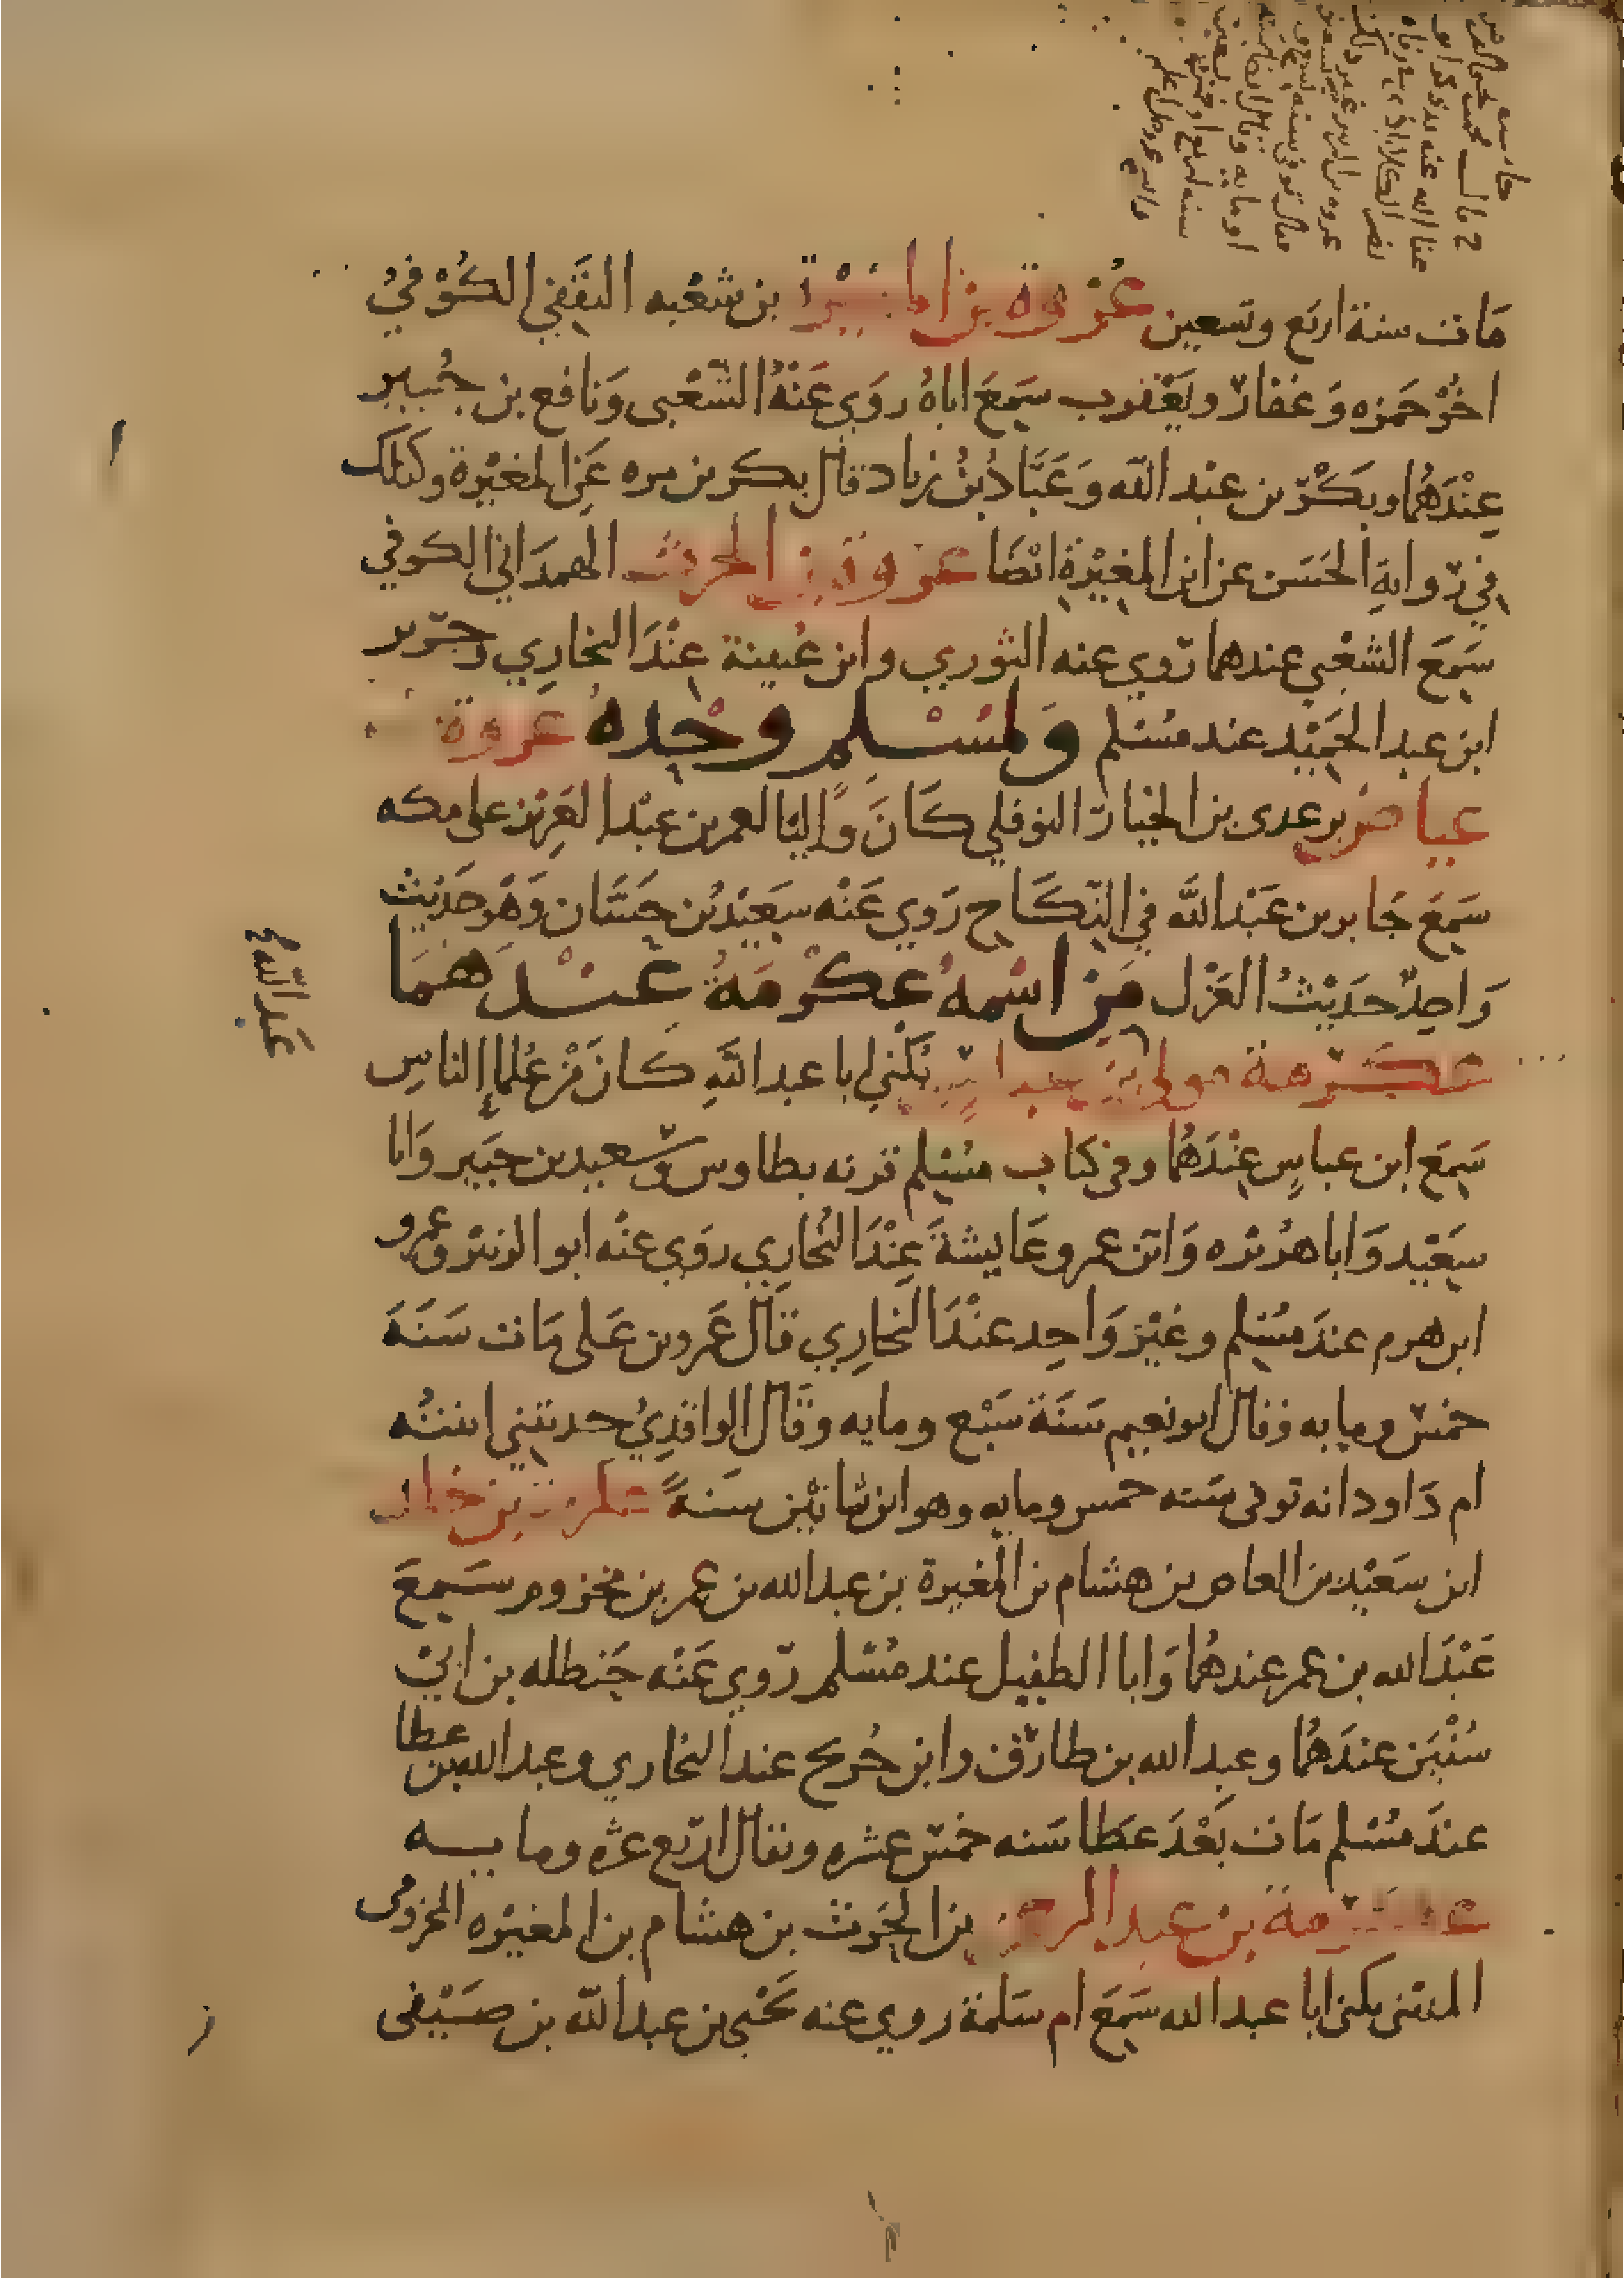 مات سنة اربع وتسعين عُروة بن المغيرة بن شعبه الثقفي الكُوفيُ
اخُو حَمزه وَعَفارّ ويَعْفرب سَمِعَ اباهُ روَي عَنْهُ الشعْبى وَنافع بن جُبيرٍ
عِنْدَهُما وبكرّ بن عبْد الله وَعَبَّادُ بنُ زياد قال بكر بن مره عَن ابن المغيْرة وكذلك
في رّوايةِ الحَسَن عن ابن المغِيْرةِ ايْضًا عروة بن الحرث الهمدَاني الكوفي
سَمِعَ الشعْبي عندهما رّوي عنه الثوري وابن عُيينة عِنْدَ البخارِي وجرّير
ابن عبد الحَمِيْد عند مسْلم وَلمُسْلِمٍ وحْدهُ عروة بن
عياض بن عدى بن الخيارّ النوفلي كَانَ وًاليًا لعمر بن عبْد العَزِيْز على مكه
سَمِعَ جَابر بن عَبْد اللَّه في النِّكَاح رَوي عَنْه سَعِيْدُ بْن حَسَّان وَهْوَ حَدِيْث
وَاحِدٌ حَديْثُ العَزْل مَن اسْمهُ عكْرمَةُ عنْدَهمَا
عكرمة مولى ابن عباس يُكَنى ابا عبد اللَّهِ كانَ مْن عُلماء الناسِ
سَمِعَ ابن عباسٍ عِنْدَهُما وفى كتاب مسْلم قرنه بطاوس وسّعيد بن جبَير وَابا
سعِيْد وَابا هرُيْره وَابْن عمر وعَايشةَ عِنْدَ البُخارِي روَي عنْه ابو الزبيْر وعمرو
ابن هرم عندَ مسْلم وغيْر وَاحِد عنْدَ البخارِي قال عَمرو بن عَلى مَات سَنَةَ
خمسّ ومايه وقال ابو نعيم سَنَة سَبْع ومايه وقَال الواقدِيُ حدثتني ابنتُه
ام دَاود انه توفى سَنه خمس ومايه وهو ابن ثمانيْن سَنةً عكرمة بن خالد
ابن سَعيْد بن العاص بن هشام بن المغيرة بن عبد الله بن عمر بن مخزوم سَمِعَ
عَبْدَ الله بن عمر عندهُما وَابا الطفيل عند مُسْلم رّوي عَنْه حَنظله بن ابيْ
سُفْيَن عندَهُما وعبد الله بن طارّق وابن جُريج عند البخاري وعبد الله بن عطا
عندَ مسْلم مَات بَعْدَ عَطا سَنه خمسّ عشره ويقال ارّبع عشره ومايه
عكرمة بن عبد الرحمن بن الحَرث بن هشام بن المغيْره المخزومى
المدَنى يكنى ابا عبد الله سَمِعَ ام سَلمة روي عنه يَحْيى بن عبد الله بن صَيْفى
عَبد الله